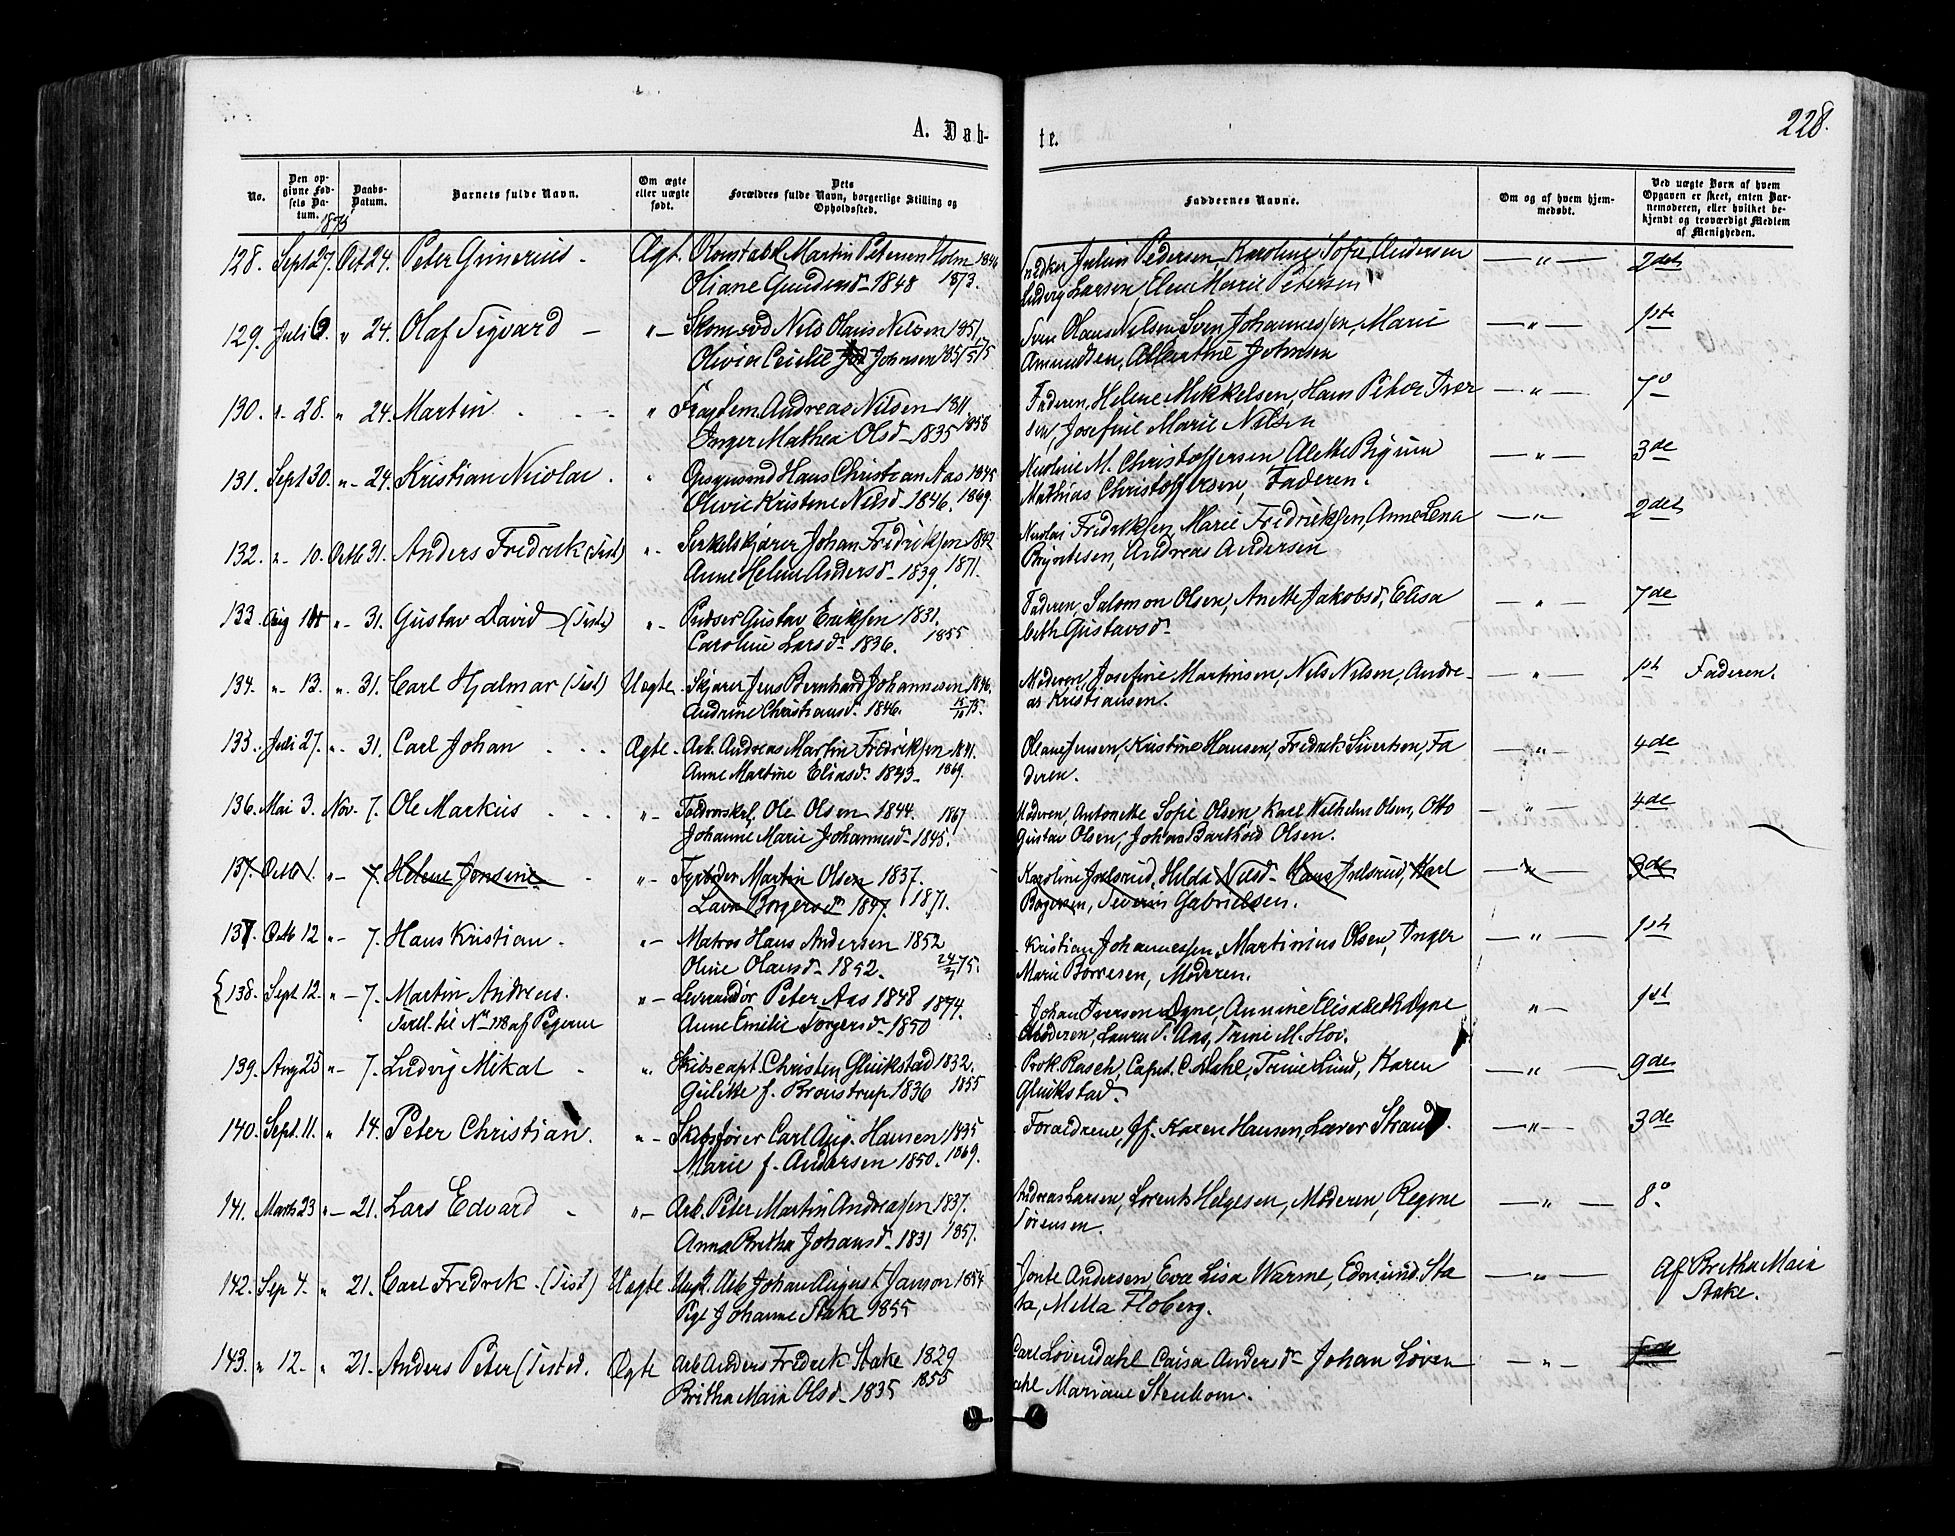 A. Døb-
te.
228.
No.
Den op-
givne Fød-
sels Da-
tum.
1875
Daabs-
Datum.
Barnets fulde Navn.
Om ægte
eller uægte
født.
Dets
Forældres fulde Navn, borgerlige Stilling og
Opholdssted.
Faddernes Navne.
Om og af hvem hjem-
medøbt.
Ved uægte Børn af hvem
Opgaven er skeet, enten Bar-
nemoderen, eller hvilket be-
kjendt og troværdigt Medlem
af Menigheden.
128. Sept 27. Oct 24. Peter Grinerius - Ægt. Konstabel Martin Petersen Holm 1846
Oliane Gundersd. 1848 1873.
Snedker Julius Pedersen, Karoline Sofie Andersen — " — 2det
Ludvig Larsen, Elen Marie Petersen
129. Juli 6 " 24. Olaf Sigvard — "- Nils Olaus Nilsen 1851,
Olivia Cecilie Johnsen 1851/75
Olaus Nilsen, Sven Johannessen, Marie — " — 1ste
Amundsen, Albertine Johnsen
130. "- 28. " 24. Martin " Andreas Nilsen 1811
Inger Mathea Olsd. 1835 1858
Faderen, Helene Mikkelsen, Hans Peter Iver — " — 7°
sen, Josefine Marie Nilsen
131. Sept 30. "- 24. Kristian Nicolai " Hans Christian Aas 1845
Olivie Kristine Nilsd. 1846. 1869.
Nicoline M. Christoffersen, Alette Bigum — " — 3de
Mathias Christoffersen, Faderen.
132. "- 10. Octb 31. Anders Fredrik (Tist) "- Johan Fredriksen 1842
Anne Helene Andersd. 1839. 1871.
Nicolai Fredriksen, Marie Fredriksen, Anne Lena — " — 2det
Andreas Andersen
133. Aug "- 31. Gustav David (Tiste) "- Pudser Gustav Eriksen 1831.
Caroline Larsd. 1836. 1855
Faderen, Salomon Olsen, Anette Jakobsd, Elisa — " — 7de
beth Gustavsd.
134. "- 13. "- 31. Carl Hjalmar (Tist) Uægte. Skjærer Jens Bernhard Johannesen 1846.
Andrine Christiansd. 1846. 15/10 75.
Moderen, Josefine Martinsen, Nils Nilsen, Andre- — " — 1st Faderen.
as Kristiansen.
135. Juli 27. "- 31. Carl Johan Ægte. Arb. Andreas Martin Fredriksen 1841.
Anne Martine Eliasd. 1843. 1869.
Oleane Jensen, Kristine Hansen, Fredrik Sivertsen, Fa — " — 4de
deren.
136. Mai 3. Nov. 7. Ole Markus "- Ole Olsen 1844. 1867
Johanne Marie Johannesd. 1845.
Moderen, Antonette Sofie Olsen, Karl Wilhelm Olsen, Otto — " — 4de
Gustav Olsen, Johan Barthold Olsen.
137. Octb 1. "- 7. Helene Jensine "- Fyrbøder Martin Olsen 1837.
Borgersd. 1847. 1871.
Karoline Hilda Nilsd. Hans Karl — " — 3de
Severin Gabrielsen.
137. Octb 12 "- 7. Hans Kristian. "- Matros Hans Andersen 1852
Oline Olausd. 1852. 75.
Kristian Johannessen, Martinius Olsen, Inger — " — 1st
Marie Børresen, Moderen.
138. Sept 12. " — 7. Martin Andreas. "- Leverandør Peter Aas 1848 1874.
Tvill. til No 118 af Pigerne Anne Emilie Torgersd. 1850
Johan Iversen Dyne, Annine Elisabeth Dyne " — 1st
Moderen, Laura P. Aas, Trine M. Hov.
139. Aug 25 "- 7. Ludvig Mikal "- Skibscapt. Christen Glückstad 1832.
Gulitte f. Broustrup 1836 1855
Prok. Rasch, Capt. C. Dahl, Trine Lund, Karen — " — 9de
Glückstad.
140. Sept. 11. " 14. Peter Christian. "- Skibsfører Carl Aug. Hansen 1835
Marie f. Andersen 1850. 1869.
Forældrene, Jf. Karen Hansen, Lærer Strand. — " — 3de
141. Marts 23 " — 21. Lars Edvard "- Arb. Peter Martin Andreassen 1837.
Anna Britha Johansd. 1831 1857.
Andreas Larsen, Lorents Helgesen, Moderen, Regine — " — 8°
Sørensen.
142. Sep 4. " 21. Carl Fredrik (Tist) Uægte Ungk. Arb Johan August Janson 1854
Pige Johanne Stake 1855
Jonte Andersen, Eva Lisa Warme, Edmund Sta — " — Af Britha Maia
ke, Metta Floberg. Stake.
143. " 12. " 21. Anders Peter (Tisted. Ægte Arb Anders Fredrik Stake 1829
Britha Maia Olsd. 1835 1855
Carl Løvendahl Caisa Andersd. Johan Løven — " —
dahl Mariane Stenhom.